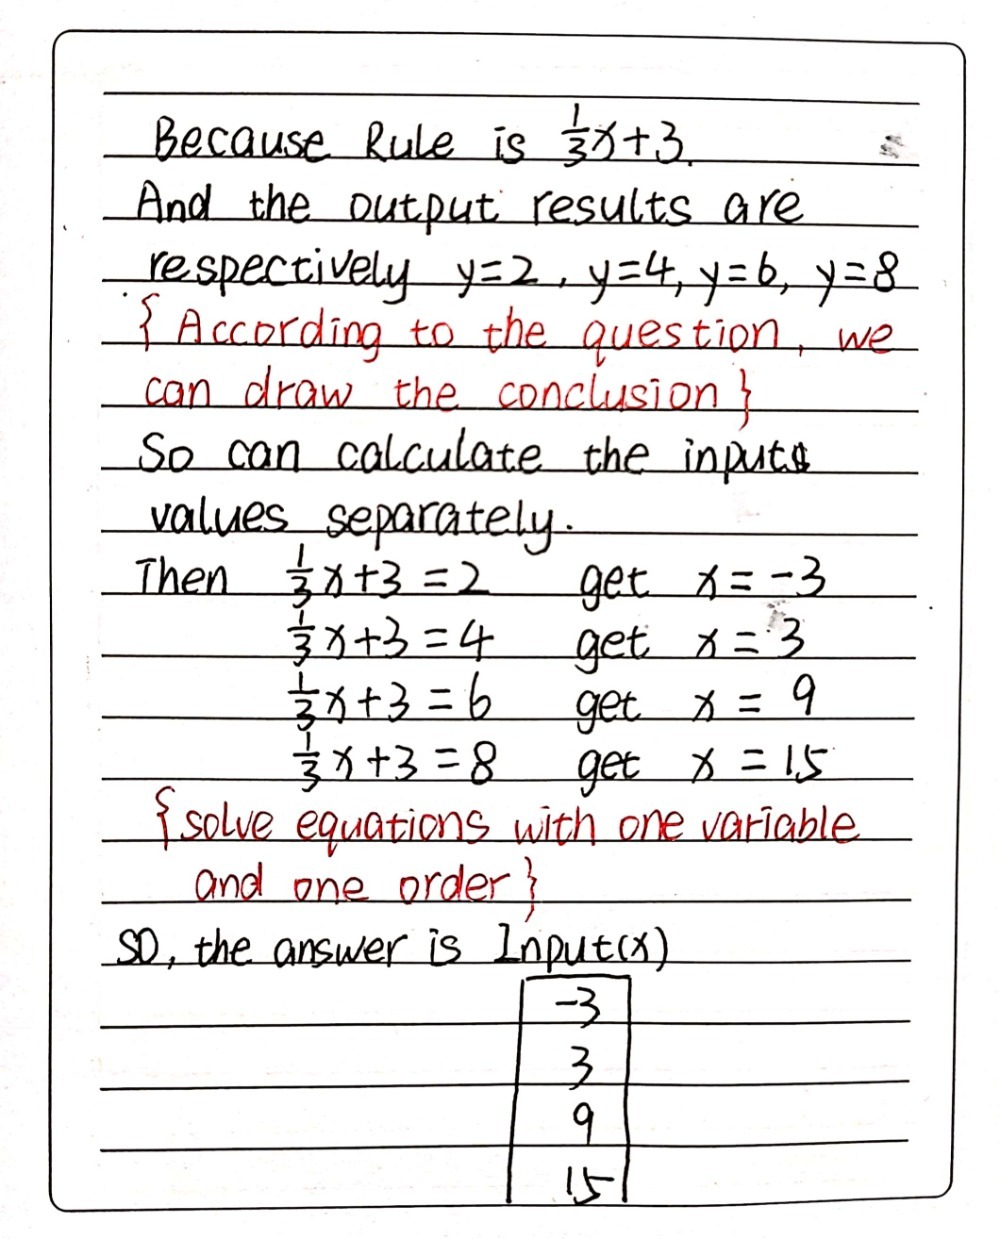 Because Rule is 1/3x+3.
And the output results are
respectively y=2, y=4, y=6, y=8
{According to the question, we
can draw the conclusion}
So can calculate the inputs
values separately.
Then 1/3x+3=2 get x=-3
1/3x+3=4 get x=3
1/3x+3=6 get x=9
1/3x+3=8 get x=15
{solve equations with one variable
and one order}
SO, the answer is Input(x)
-3
3
9
15